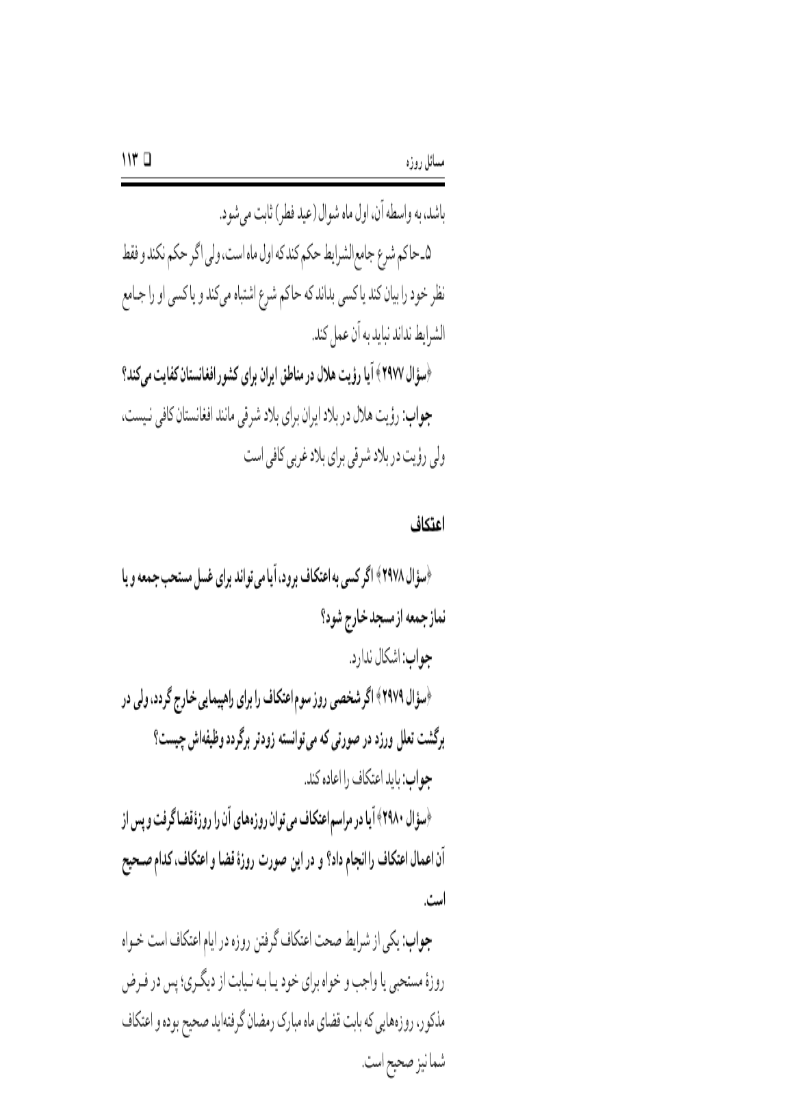 مسائل روزه □ ۱۱۳
باشد، به واسطه آن، اول ماه شوال (عید فطر) ثابت می‌شود.
۵ـ حاکم شرع جامع‌الشرایط حکم کند که اول ماه است، ولی اگر حکم نکند و فقط
نظر خود را بیان کند یا کسی بداند که حاکم شرع اشتباه می‌کند و یا کسی او را جامع
الشرایط نداند نباید به آن عمل کند.
﴿سؤال ۲۹۷۷﴾ آیا رؤیت هلال در مناطق ایران برای کشور افغانستان کفایت می‌کند؟
جواب: رؤیت هلال در بلاد ایران برای بلاد شرقی مانند افغانستان کافی نیست،
ولی رؤیت در بلاد شرقی برای بلاد غربی کافی است
اعتکاف
﴿سؤال ۲۹۷۸﴾ اگر کسی به اعتکاف برود، آیا می‌تواند برای غسل مستحب جمعه و یا
نماز جمعه از مسجد خارج شود؟
جواب: اشکال ندارد.
﴿سؤال ۲۹۷۹﴾ اگر شخصی روز سوم اعتکاف را برای راهپیمایی خارج گردد، ولی در
برگشت تعلل ورزد در صورتی که می‌توانسته زودتر برگردد وظیفه‌اش چیست؟
جواب: باید اعتکاف را اعاده کند.
﴿سؤال ۲۹۸۰﴾ آیا در مراسم اعتکاف می‌توان روزه‌های آن را روزهٔ قضا گرفت و پس از
آن اعمال اعتکاف را انجام داد؟ و در این صورت روزهٔ قضا و اعتکاف، کدام صحیح
است.
جواب: یکی از شرایط صحت اعتکاف گرفتن روزه در ایام اعتکاف است خواه
روزهٔ مستحبی یا واجب و خواه برای خود یا به نیابت از دیگری؛ پس در فرض
مذکور، روزه‌هایی که بابت قضای ماه مبارک رمضان گرفته‌اید صحیح بوده و اعتکاف
شما نیز صحیح است.